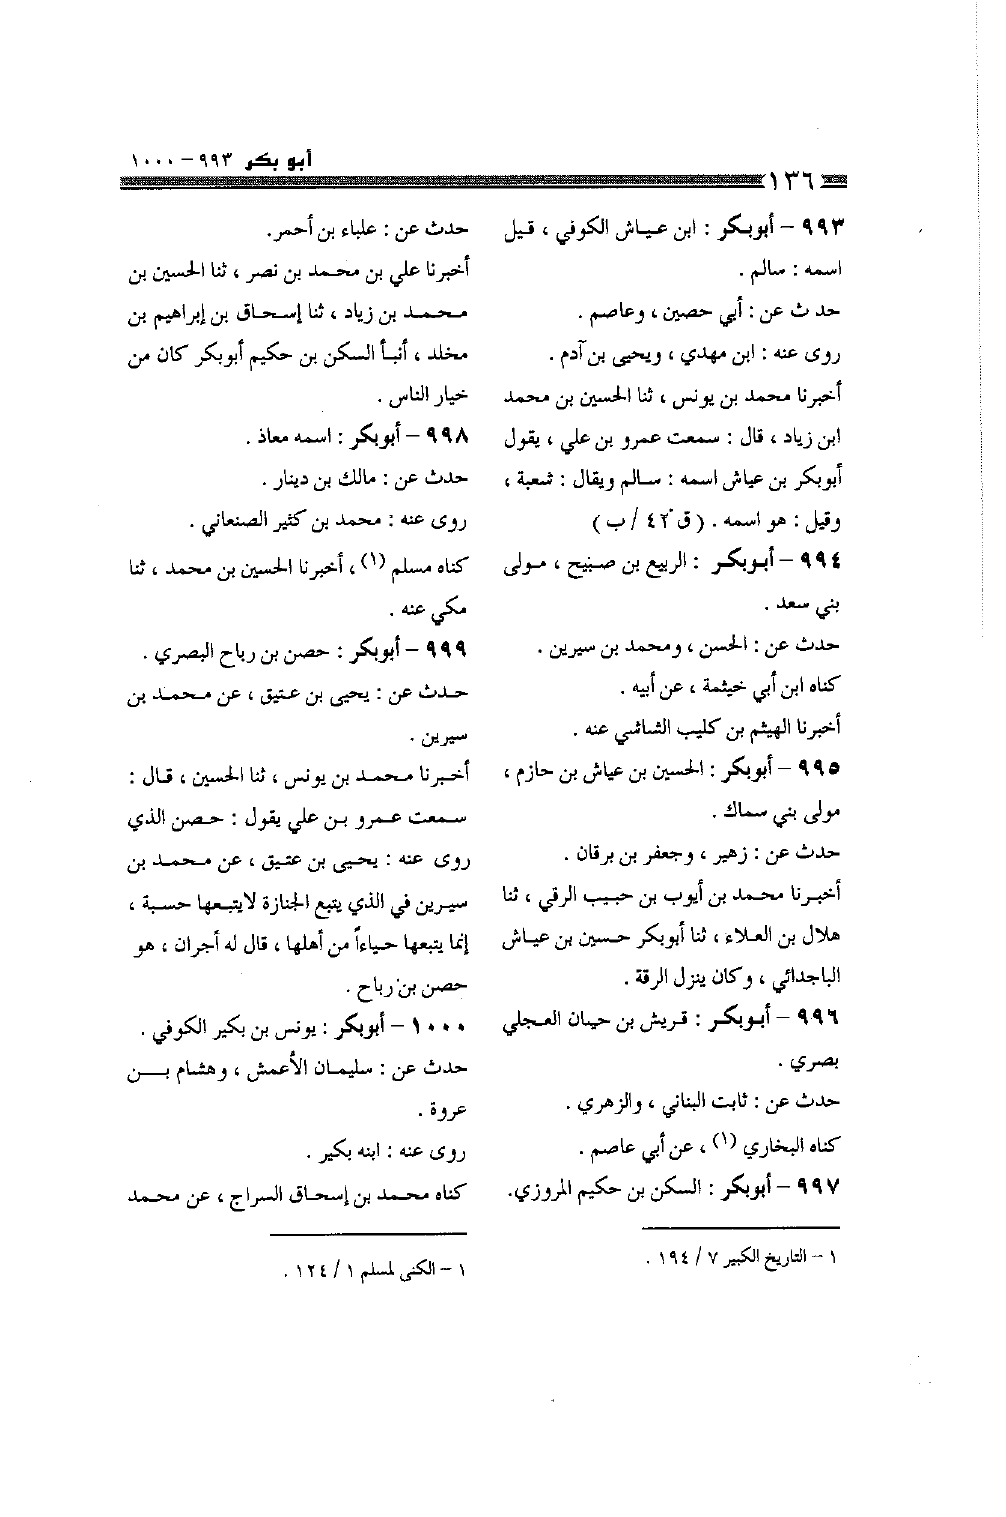 أبو بكر ٩٩٣ – ١٠٠٠
١٣٦
٩٩٣ – أبوبكر : ابن عياش الكوفي ، قيل
اسمه : سالم .
حدث عن : أبي حصين ، وعاصم .
روى عنه : ابن مهدي ، ويحيى بن آدم .
أخبرنا محمد بن يونس ، ثنا الحسين بن محمد
ابن زياد ، قال : سمعت عمرو بن علي ، يقول
أبوبكر بن عياش اسمه : سالم ويقال : شعبة ،
وقيل : هو اسمه . ( ق ٤٢ / ب )
٩٩٤ – أبوبكر : الربيع بن صبيح ، مولى
بني سعد .
حدث عن : الحسن ، ومحمد بن سيرين .
كناه ابن أبي خيثمة ، عن أبيه .
أخبرنا الهيثم بن كليب الشاشي عنه .
٩٩٥ – أبوبكر : الحسين بن عياش بن حازم ،
مولى بني سماك .
حدث عن : زهير ، وجعفر بن برقان .
أخبرنا محمد بن أيوب بن حبيب الرقي ، ثنا
هلال بن العلاء ، ثنا أبوبكر حسين بن عياش
الباجدائي ، وكان ينزل الرقة .
٩٩٦ – أبوبكر : قريش بن حيان العجلي
بصري .
حدث عن : ثابت البناني ، والزهري .
كناه البخاري (١) ، عن أبي عاصم .
٩٩٧ – أبوبكر : السكن بن حكيم المروزي.
١ – التاريخ الكبير ٧ / ١٩٤ .
حدث عن : علباء بن أحمر.
أخبرنا علي بن محمد بن نصر ، ثنا الحسين بن
محمد بن زياد ، ثنا إسحاق بن إبراهيم بن
مخلد ، أنبأ السكن بن حكيم أبوبكر كان من
خيار الناس .
٩٩٨ – أبوبكر : اسمه معاذ .
حدث عن : مالك بن دينار .
روى عنه : محمد بن كثير الصنعاني .
كناه مسلم (١) ، أخبرنا الحسين بن محمد ، ثنا
مكي عنه .
٩٩٩ – أبوبكر : حصن بن رباح البصري .
حدث عن : يحيى بن عتيق ، عن محمد بن
سيرين .
أخبرنا محمد بن يونس ، ثنا الحسين ، قال :
سمعت عمرو بن علي يقول : حصن الذي
روى عنه : يحيى بن عتيق ، عن محمد بن
سيرين في الذي يتبع الجنازة لايتبعها حسبة ،
إنما يتبعها حياءاً من أهلها ، قال له أجران ، هو
حصن بن رباح .
١٠٠٠ – أبوبكر : يونس بن بكير الكوفي .
حدث عن : سليمان الأعمش ، وهشام بن
عروة .
روى عنه : ابنه بكير .
كناه محمد بن إسحاق السراج ، عن محمد
١ – الكنى لمسلم ١ / ١٢٤ .